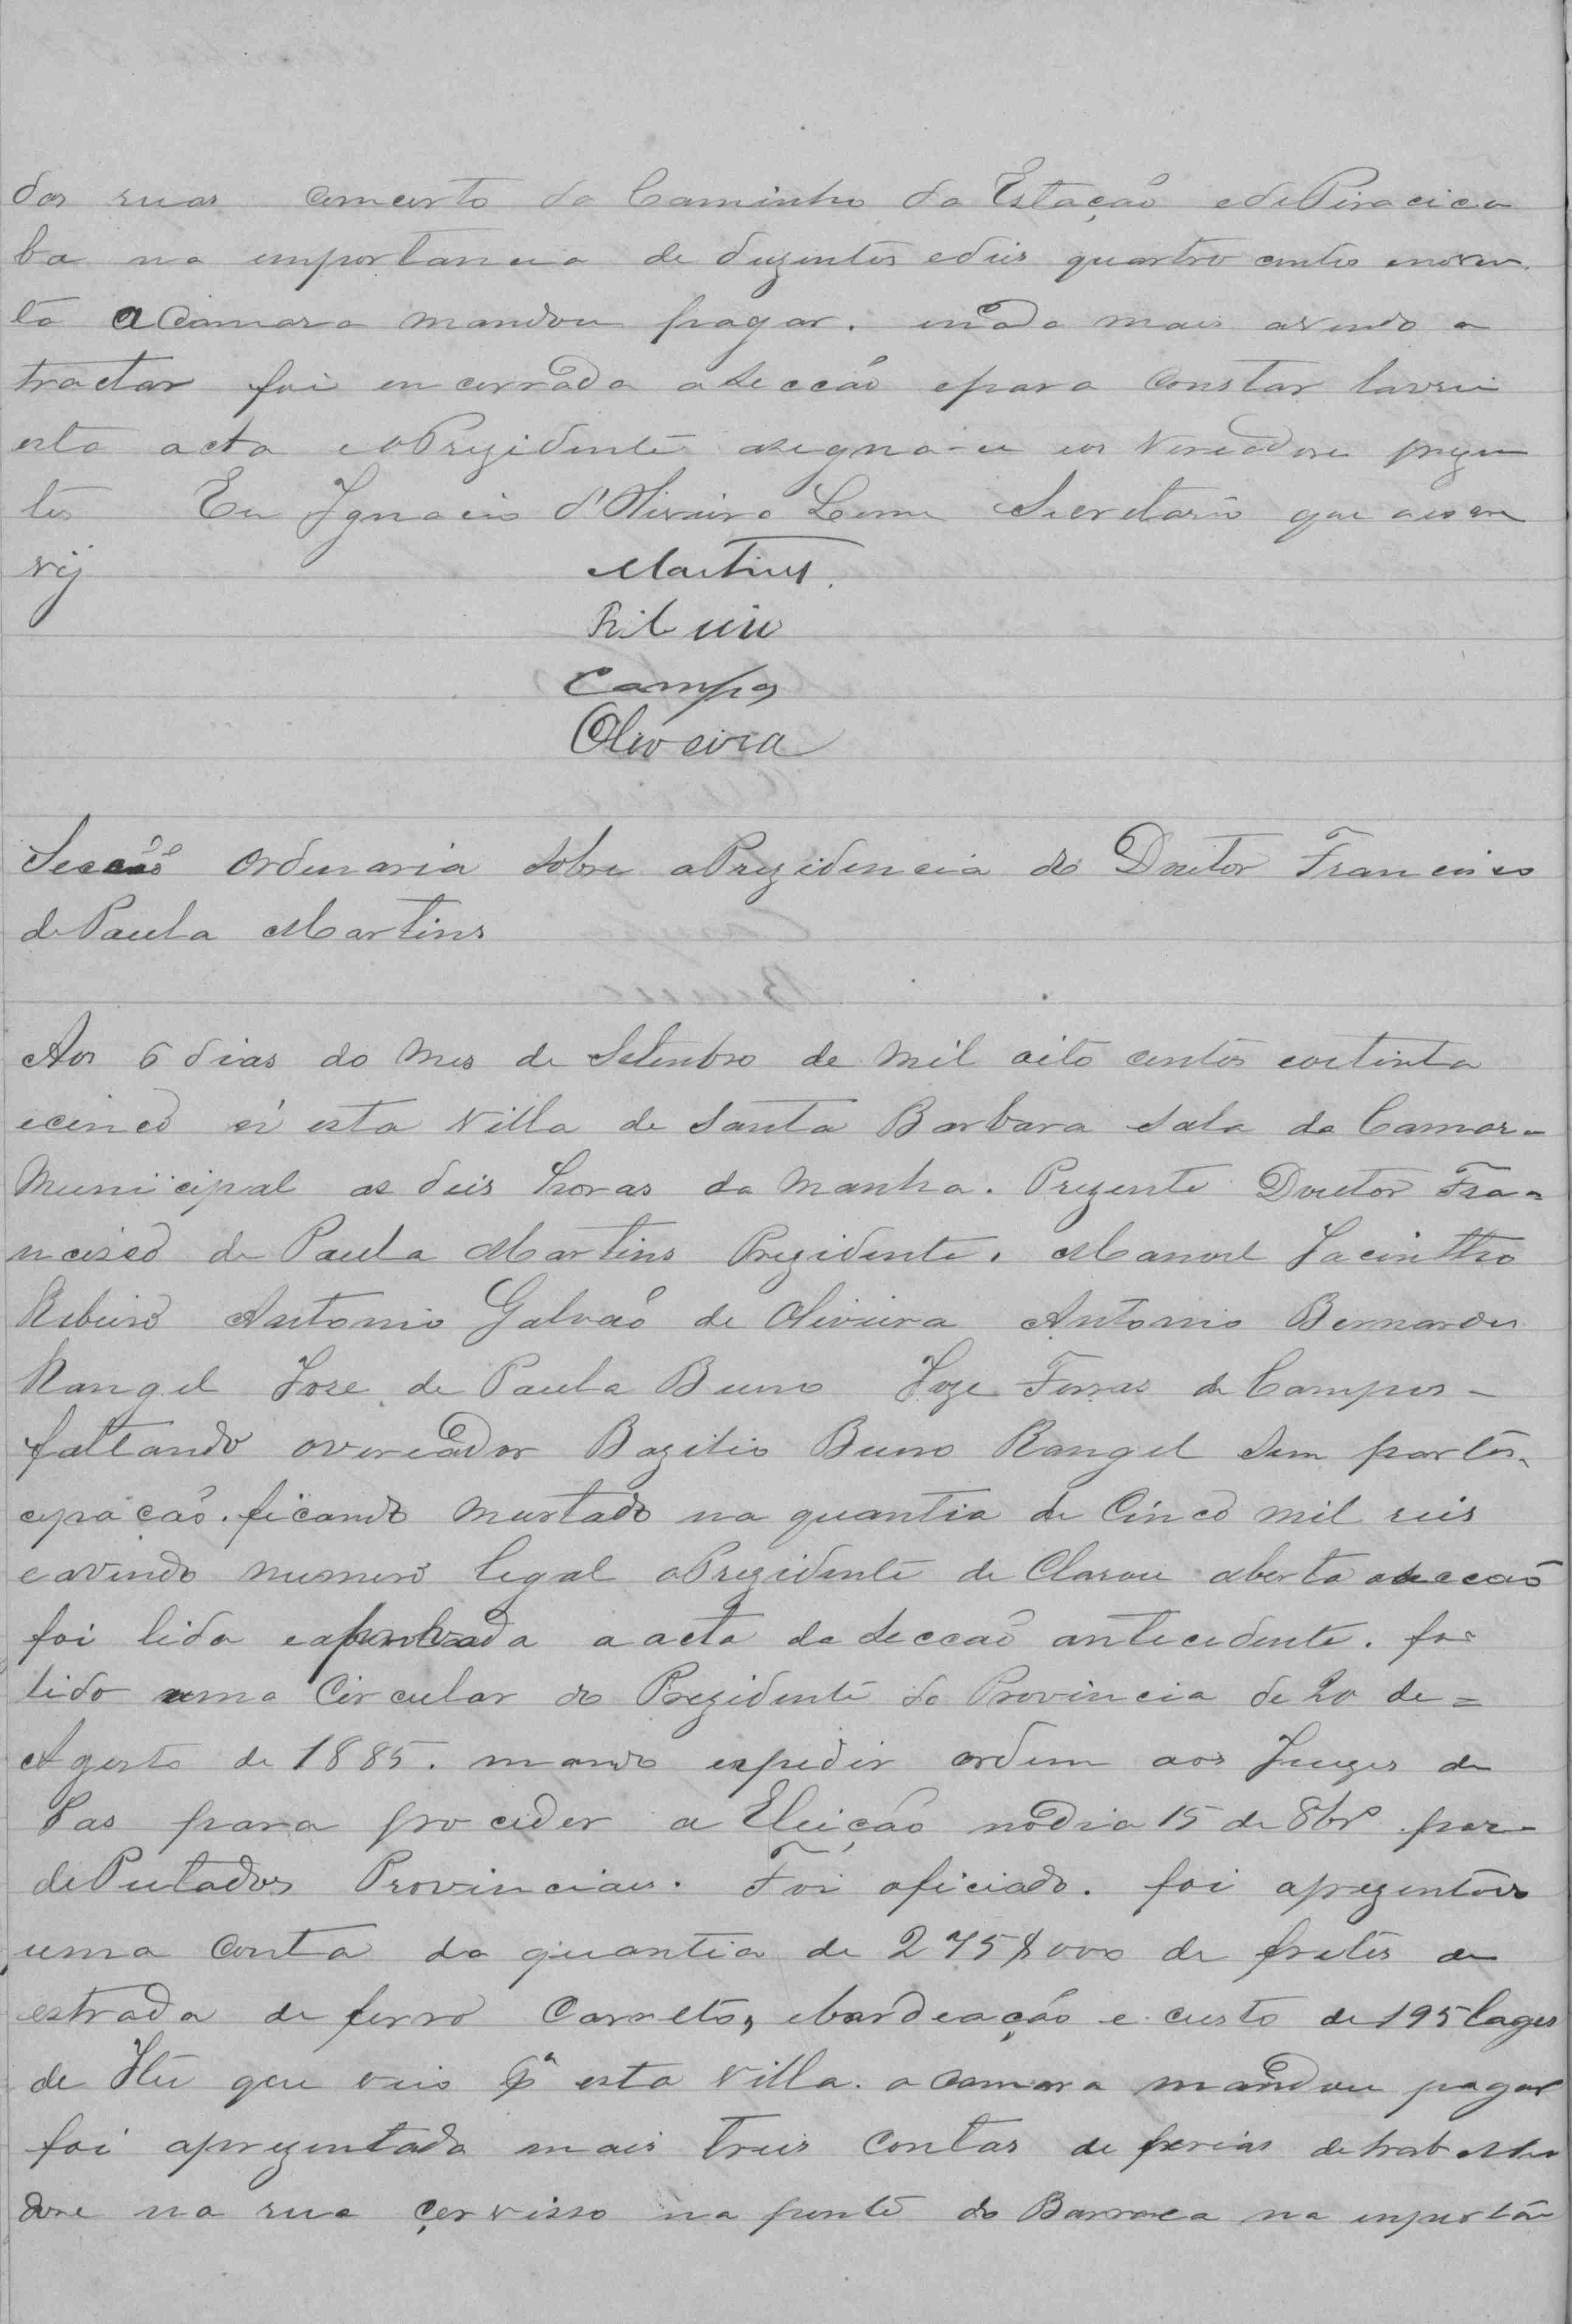 das ruas concerto do Caminho da Estação e de Piracica
ba na importancia de duzentos e deis quatro centos enoven
ta a Camara mandou pagar. enada mais avendo a
tractar foi en cerrada a Secção epara Constar lavrei
esta acta e o Prezidente asegna-ce eos Vereadore prezen
tes Eu Ignacio d'Oliveira Leme Secretario que aes cre
vij
Martins.
Ribeiro
Campos
Oliveira
Secção Ordenaria Sobre a Prezidencia do Doutor Francisco
de Paula Martins
Aos 6 dias do Mes de Setenbro de Mil oito centos eoitenta
ecinco n'esta Villa de Santa Barbara Sala da Camar-
Municipal as deis horas da Manha. Prezente Doutor Fra=
ncisco de Paula Martins Prezidente. Manoel Jacinttho
Ribeiro Antonio Galvão de Oliveira Antonio Bernardes
Rangel Jose de Paula Bueno Joze Ferras de Campos -
faltando overeador Bazilio Bueno Rangel Sem partes-
cipação. ficando Murtado na quantia de Cinco mil reis
eavendo numero legal o Prezidente de Clarou aberta a Secção
foi lida eaprovada a acta da Secção antecedente. foi
lido uma Circular do Prezidente da Provincia de 20 de=
Agosto de 1885. mando expedir ordem aos Juizes de
Pas para pro ceder a Eleição nodia 15 de 8brº par-
dePutados Provinciais. Foi oficiado. foi aprezentado
uma Conta da quantia de 275$000 de fretes de
estrada de ferro Carreto, ebardeação e custo de 195 lages
de Itú que veio pª esta Villa. a Camara mandou pagar
foi aprezentada mais treis Contas de ferias de trabalha
dore na rua Çervisso na ponte do Barroca na inportan